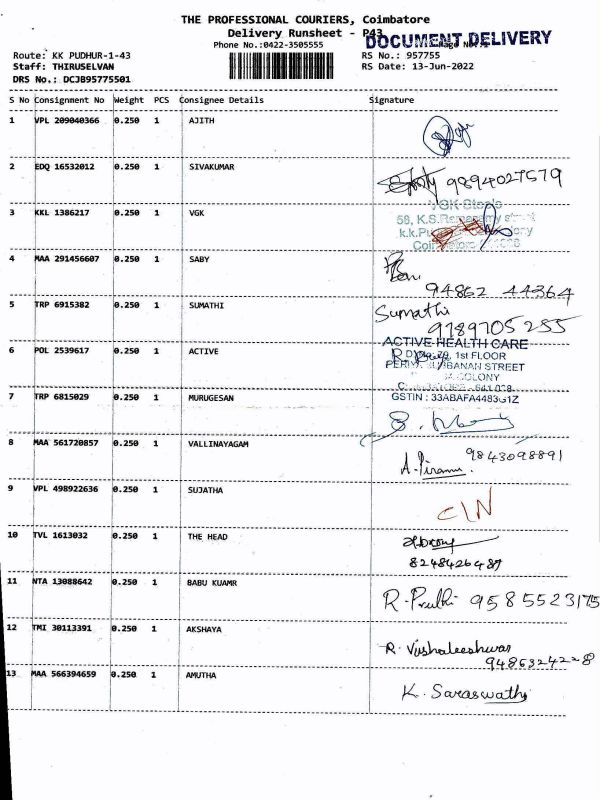 THE PROFESSIONAL COURIERS, Coimbatore
Delivery Runsheet - P43
DOCUMENT DELIVERY
Phone No.:0422-3505555
Route: KK PUDHUR-1-43
RS No.: 957755
Staff: THIRUSELVAN
RS Date: 13-Jun-2022
DRS No.: DCJB95775501
S No Consignment No Weight PCS Consignee Details Signature
1 VPL 209040366 0.250 1 AJITH
2 EDQ 16532012 0.250 1 SIVAKUMAR
9894027579
3 KKL 1386217 0.250 1 VGK
VGK Steels
58, K.S.
4 MAA 291456607 0.250 1 SABY
94862 44364
5 TRP 6915382 0.250 1 SUMATHI
Sumathi
9789705255
6 POL 2539617 0.250 1 ACTIVE
ACTIVE HEALTH CARE
1st FLOOR
STREET
COLONY
GSTIN : 33ABAFA4483G1Z
7 TRP 6815029 0.250 1 MURUGESAN
8 MAA 561720857 0.250 1 VALLINAYAGAM
9843098891
9 VPL 498922636 0.250 1 SUJATHA
10 TVL 1613032 0.250 1 THE HEAD
8248426487
11 NTA 13088642 0.250 1 BABU KUAMR
R. Pruthi 9585523175
12 TMI 30113391 0.250 1 AKSHAYA
R. Vishaleeshwar
9486324228
13 MAA 566394659 0.250 1 AMUTHA
K. Saraswathy